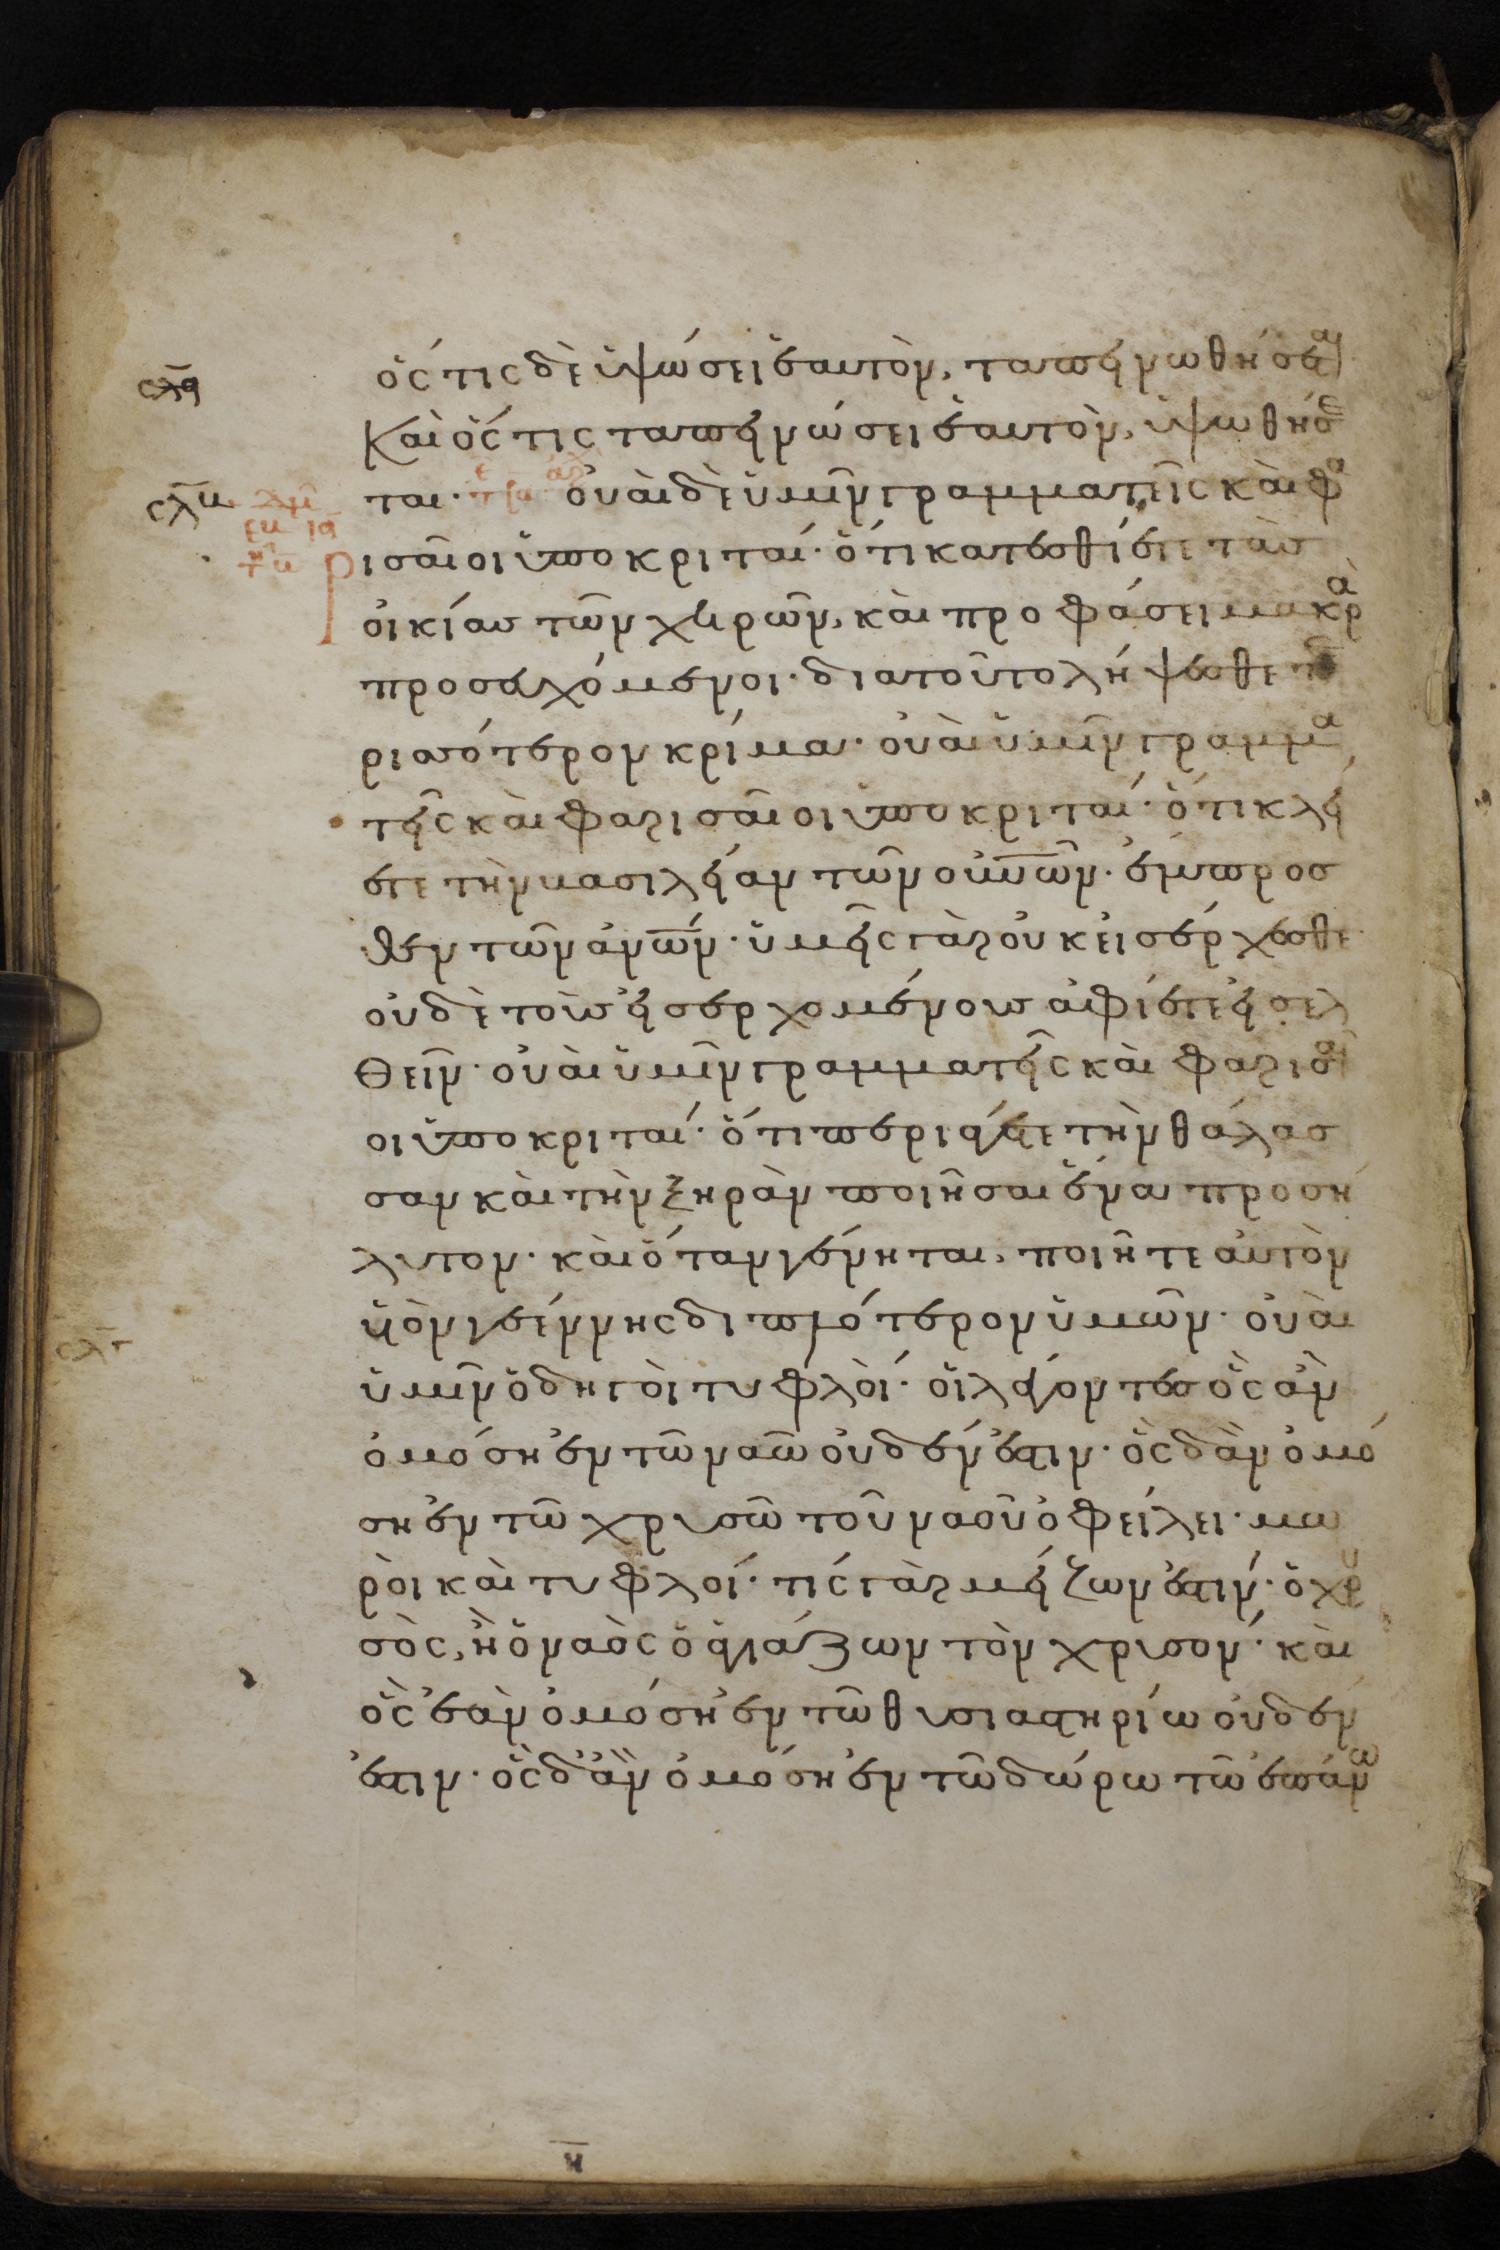 ὅς τις δὲ ὑψώσει ἑαυτὸν, ταπεινωθήσεται
Καὶ ὅς τις ταπεινώσει ἑαυτὸν, ὑψωθήσε
ται· οὐαὶ δὲ ὑμῖν γραμματεῖς καὶ φα
ρισαῖοι ὑποκριταί· ὅτι κατεσθίετε τὰς
οἰκίας τῶν χηρῶν, καὶ προφάσει μακρὰ
προσευχόμενοι· διατοῦτο λήψεσθε πε
ρισσότερον κρίμα· οὐαὶ ὑμῖν γραμμα
τεῖς καὶ φαρισαῖοι ὑποκριταί· ὅτι κλεί
ετε τὴν βασιλείαν τῶν οὐνῶν· ἔμπροσ
θεν τῶν ἀνῶν· ὑμεῖς γὰρ οὐκ εἰσέρχεσθε
οὐδὲ τοὺς εἰσερχομένους ἀφίετε εἰσελ
θεῖν· οὐαὶ ὑμῖν γραμματεῖς καὶ φαρισαῖ
οι ὑποκριταί· ὅτι περιάγετε τὴν θάλασ
σαν καὶ τὴν ξηρὰν ποιῆσαι ἕνα προσή
λυτον· καὶ ὅταν γένηται, ποιῆτε αὐτὸν
υἱὸν γεέννης διπλότερον ὑμῶν· οὐαὶ
ὑμῖν ὁδηγοὶ τυφλοί· οἱ λέγοντες ὃς ἂν
ὀμόση ἐν τῶ ναῶ οὐδέν ἐστιν· ὃς δἂν ὀμό
ση ἐν τῶ χρυσῶ τοῦ ναοῦ ὀφείλει· μω
ροὶ καὶ τυφλοί· τίς γὰρ μείζων ἐστίν· ὁ χρυ
σὸς, ἢ ὁ ναὸς ὁ ἁγιάζων τὸν χρυσόν· καὶ
ὃς ἐὰν ὀμόση ἐν τῶ θυσιαστηρίω οὐδέν
ἐστιν· ὃς δ' ἂν ὀμόση ἐν τῶ δώρω τῶ ἐπάνω
η